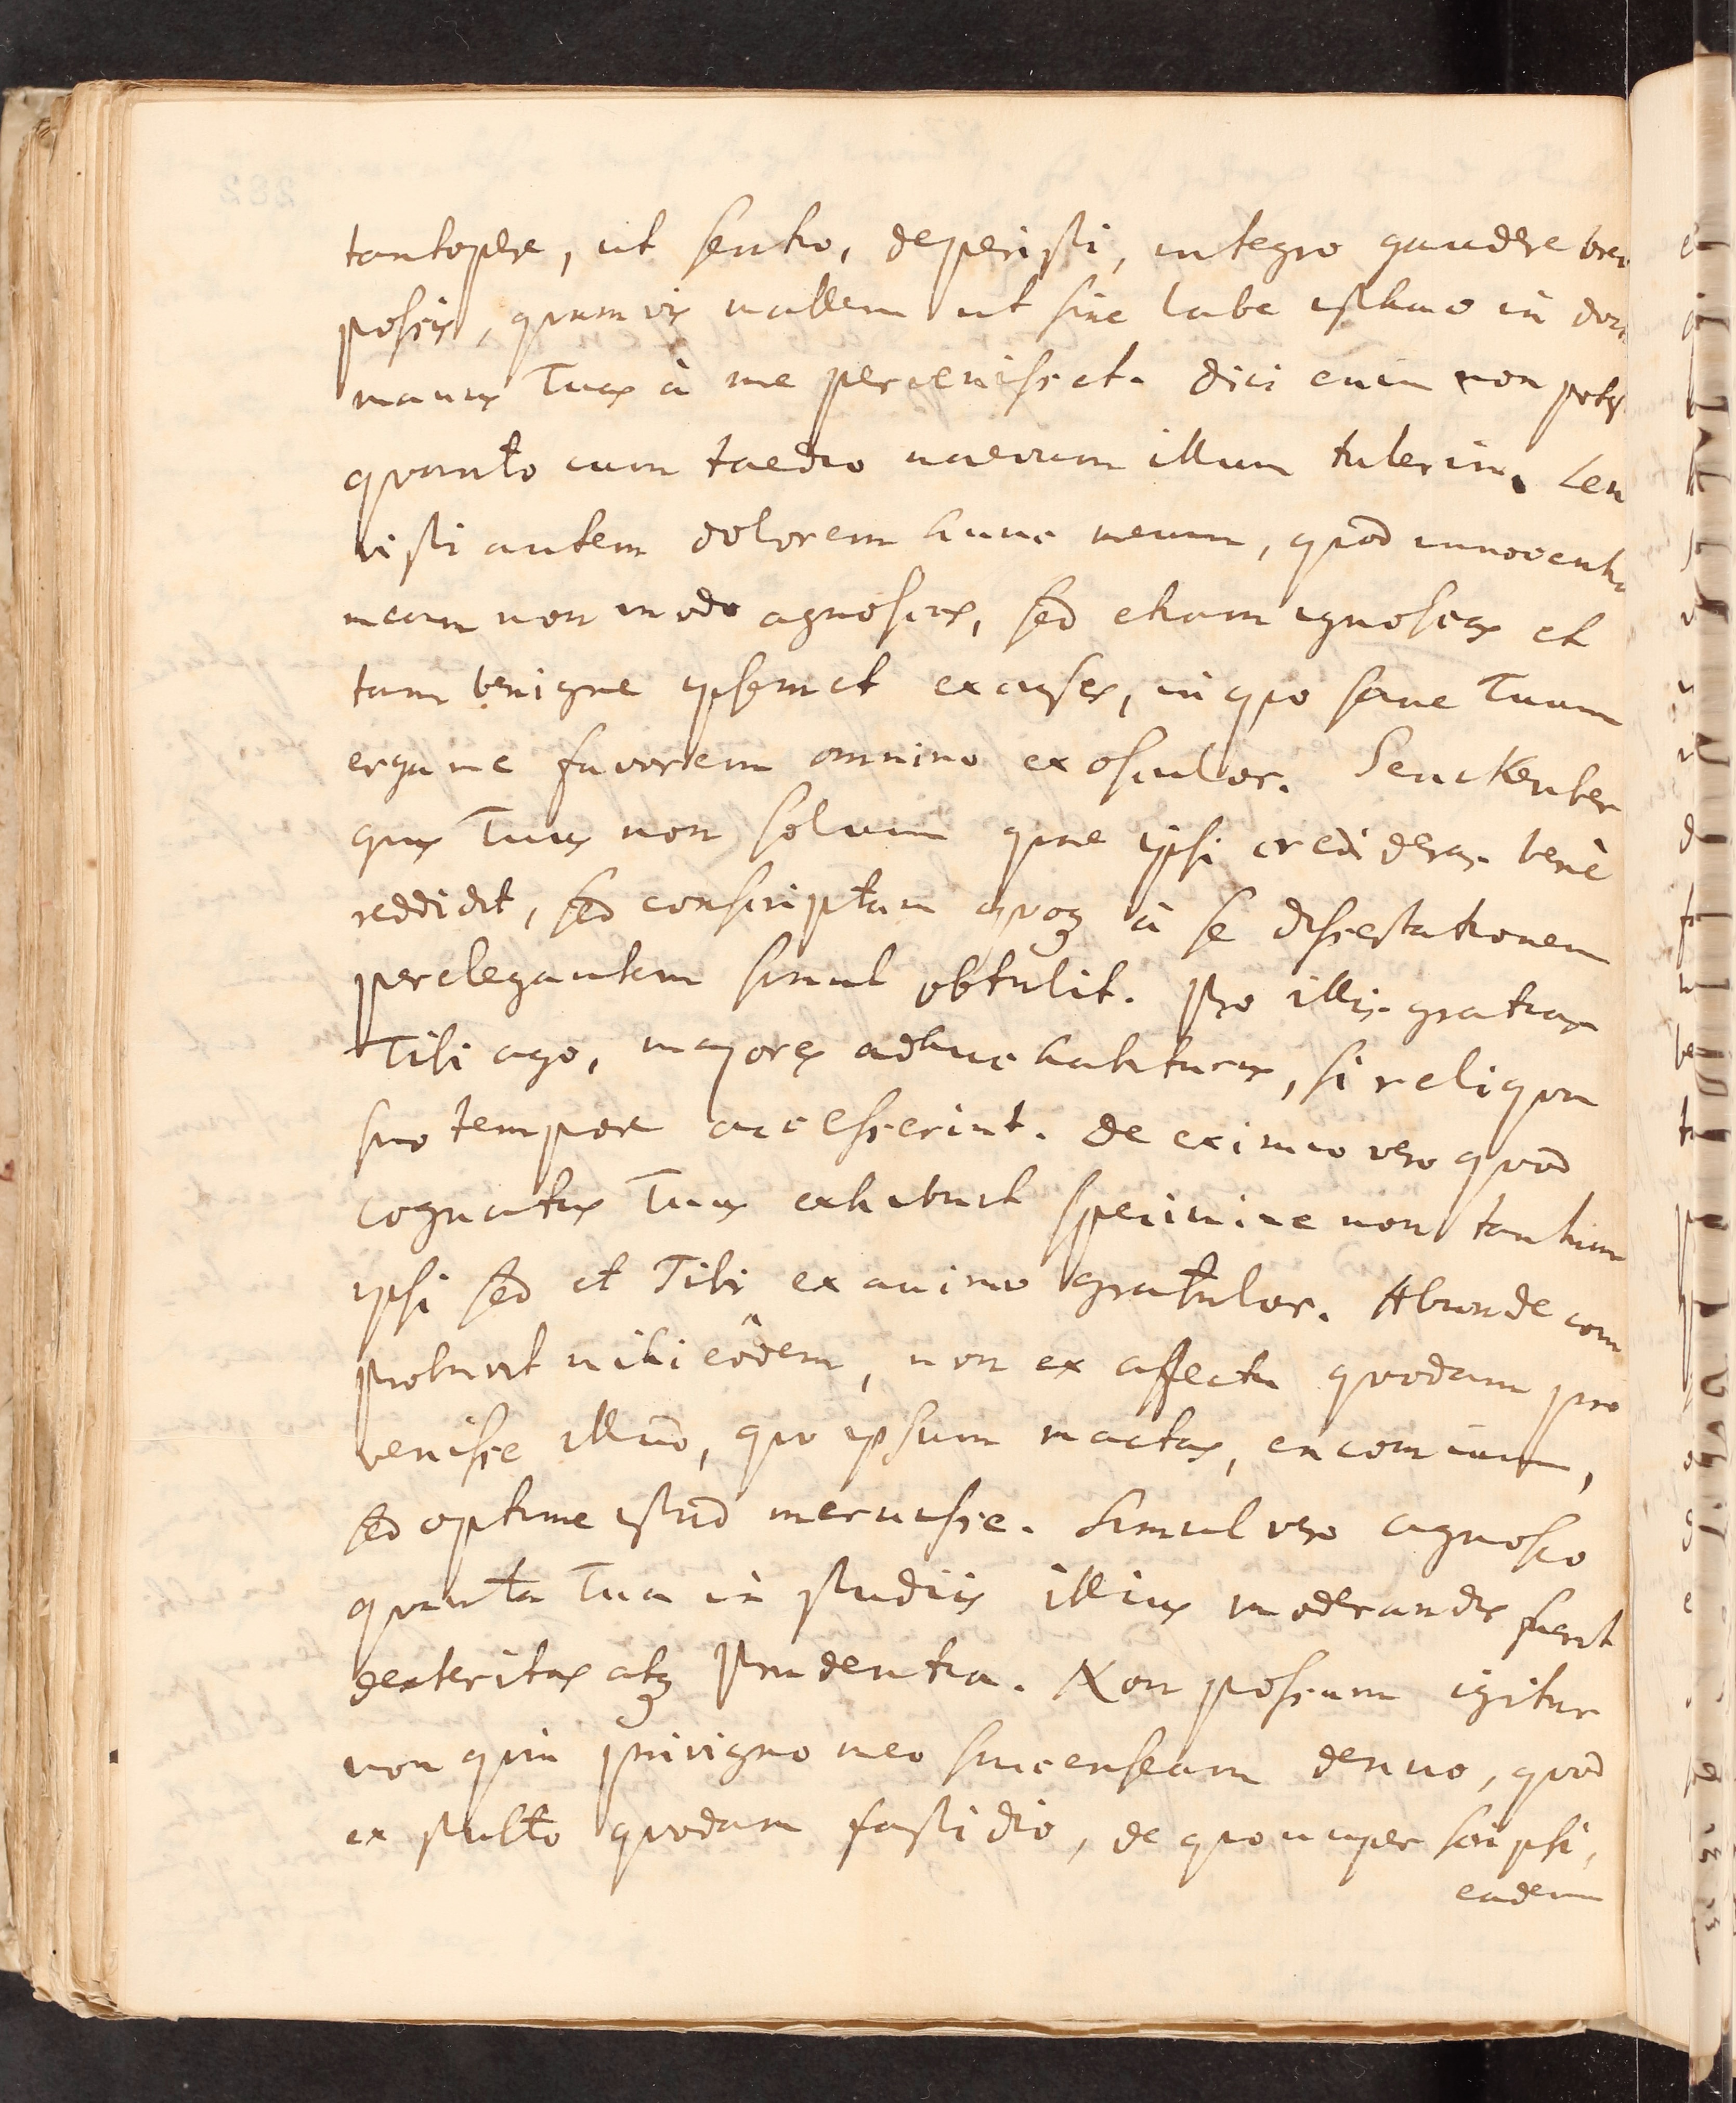 tantopere, ut sentio, deperisti, integro gaudere brevi
possis, quamvis mallem ut sine labe isthaec in
manus Tuas à me pervenisset. dici enim non potest
quanto cum taedio naevum illum tulerim. Len
visti autem dolorem hunc meum, quod innocentia
meam non modo agnoscas, sed etiam ignoscas et
tam benigne ipsemet excuses, in quo sane Tuum
erga me favorem omnino exosculor. Senckenber
gus Tuus non solum quae ipsi credideras benè
reddidit, sed conscriptam quoq à se dissertationem
perelegantem simul obtulit. pro illis gratias
Tibi ago, majores adhuc habiturus, si reliqua
suo tempore accesserint. de eximio vero quod
cognatus Tuus exhibuit specimine non tantum
ipsi sed et Tibi ex animo gratulor. Abunde com
probavit mihi eôdem, non ex affectu quodam pro
venisse illud, quo ipsum mactas, encomium,
sed optime istud meruisse. Simul vero agnosco
quanta Tua in studiis illius moderandis fuerit
dexteritas atq prudentia. Non possum igitur
non quin privigno meo succenseam denuo, quod
ex stulto quodam fastidio, de quo nuper scripsi,
eadem
282